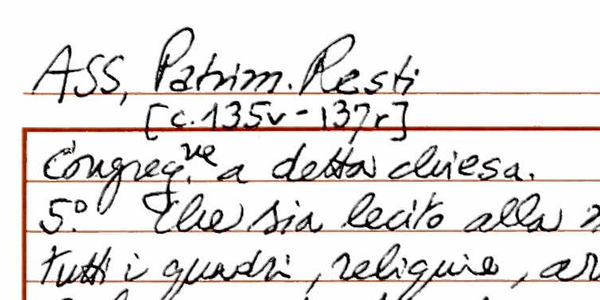 ASS, Patrim. Resti
[c.135v-137r]
Congreg.ne a detta chiesa.
5.° Che sia lecito alla
tutti i quadri, reliquie, ar